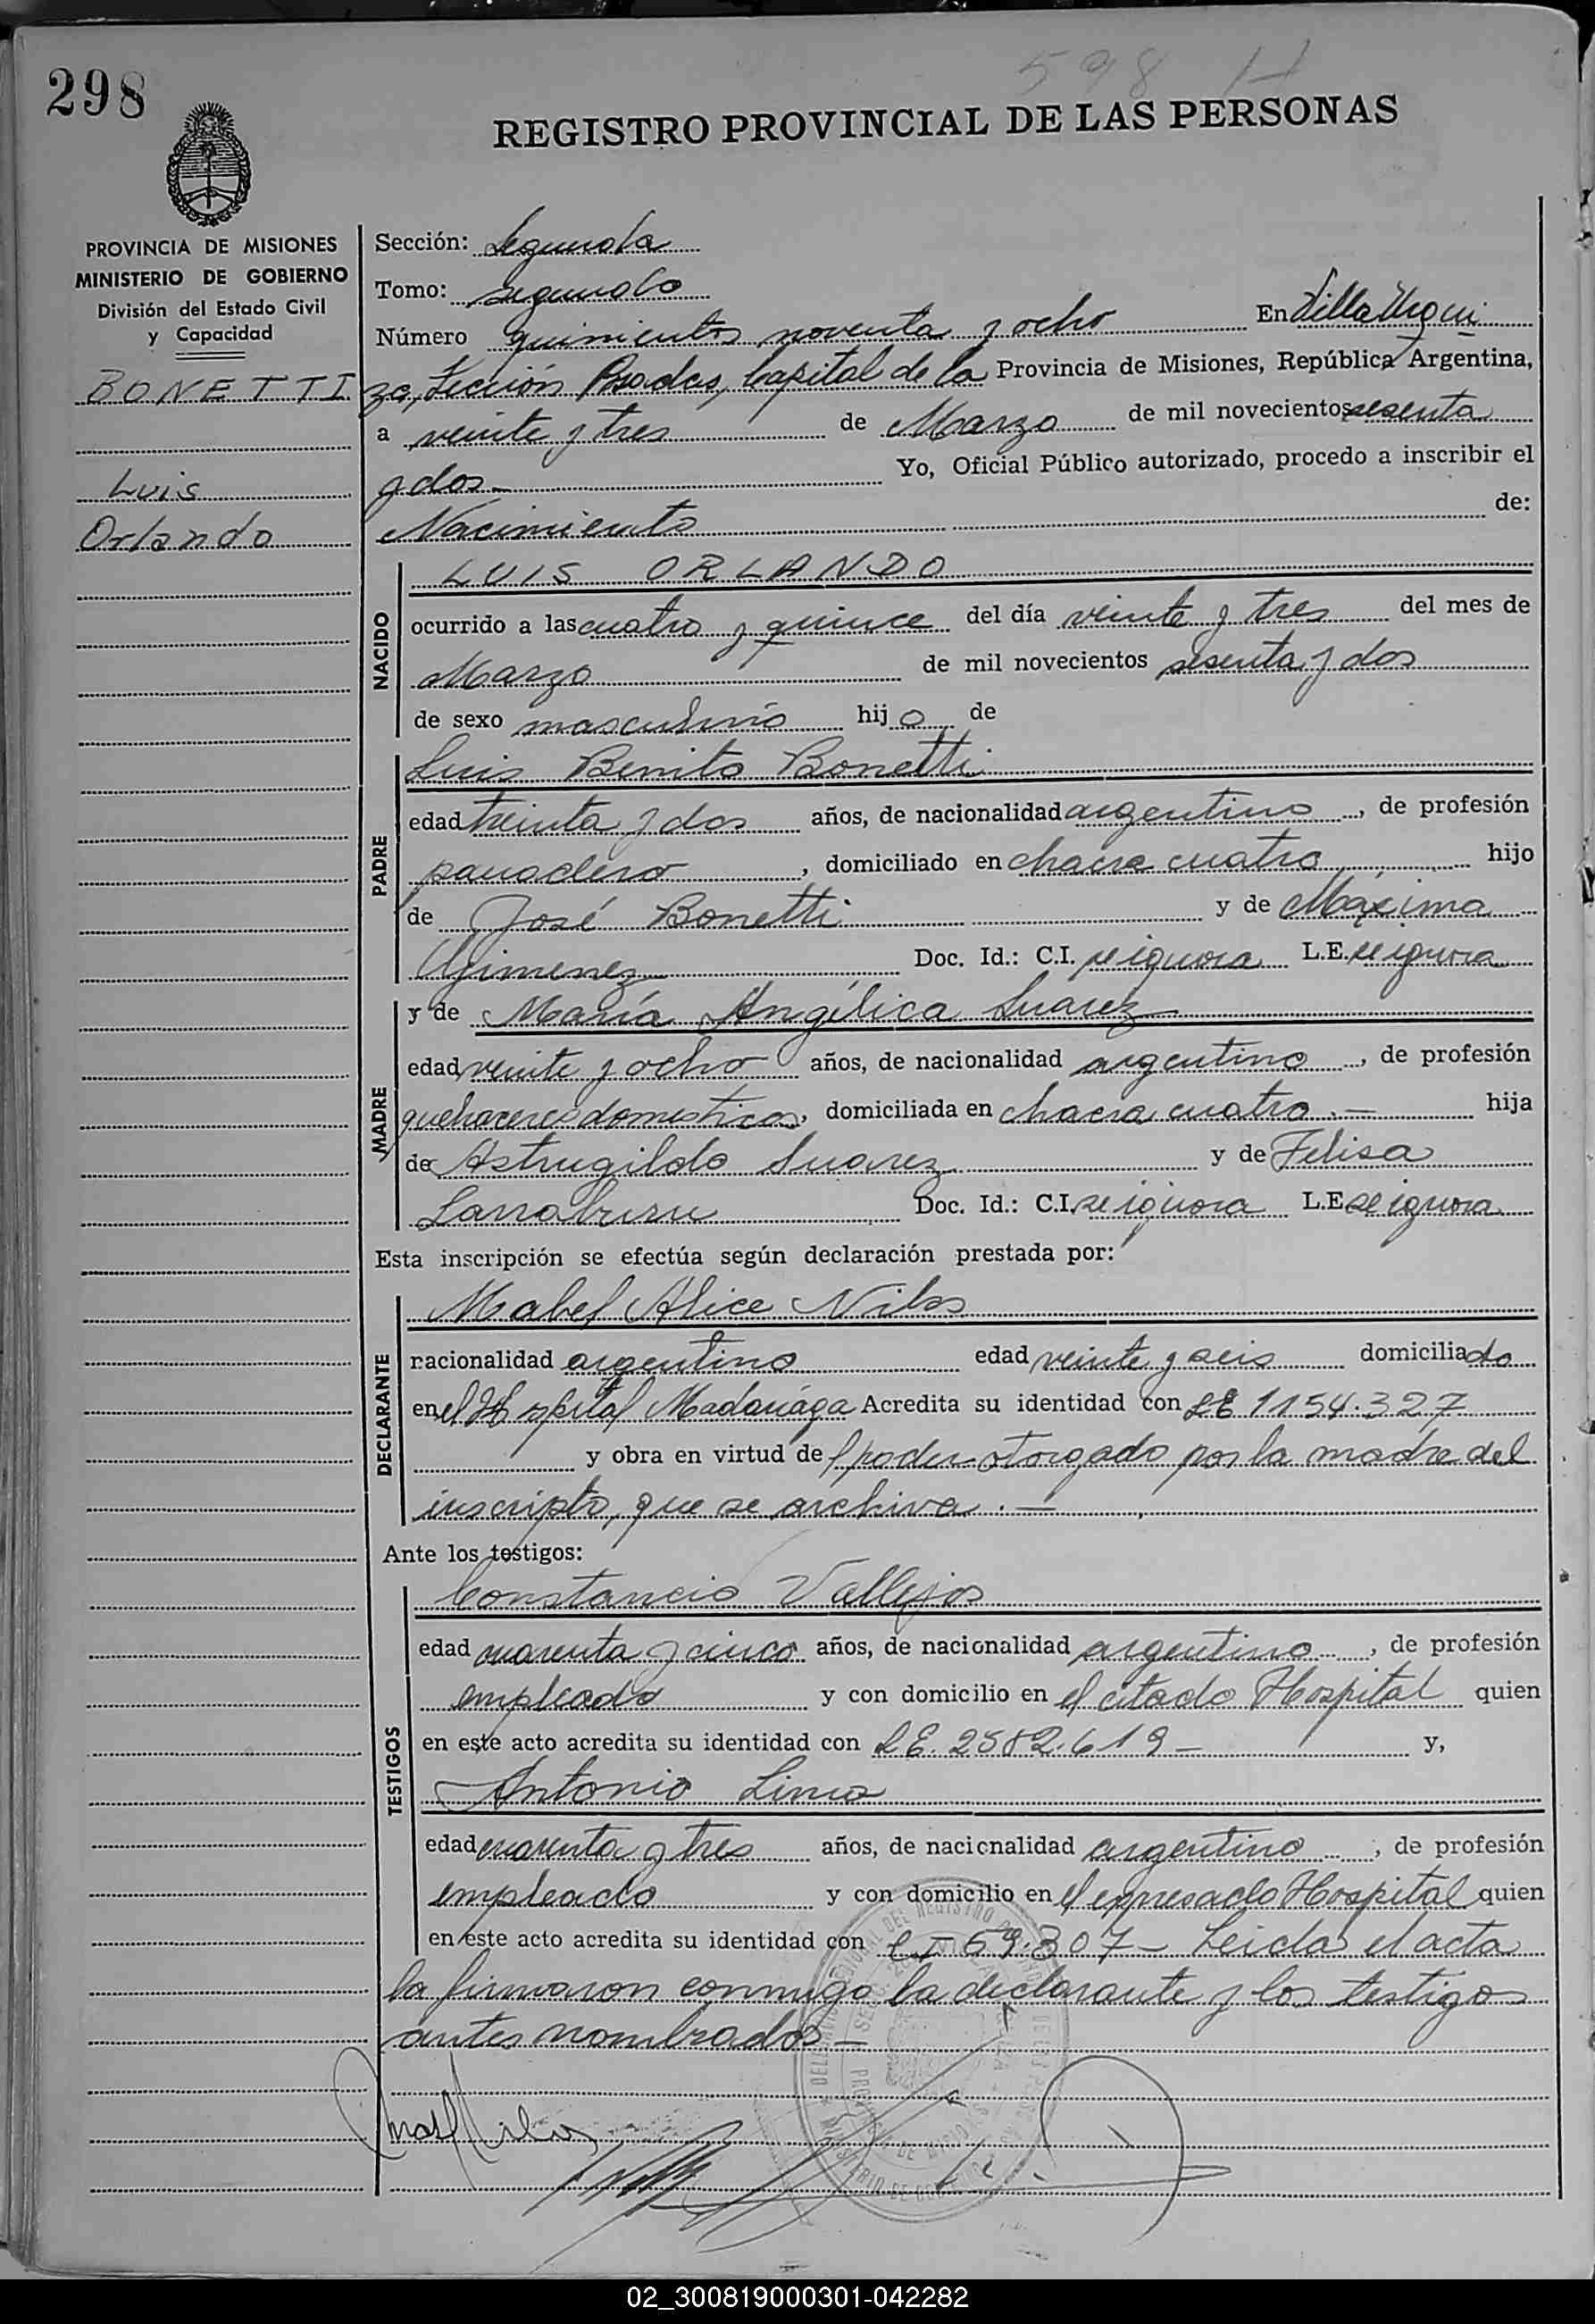 298
598 H
REGISTRO PROVINCIAL DE LAS PERSONAS
PROVINCIA DE MISIONES
MINISTERIO DE GOBIERNO
División del Estado Civil
y Capacidad
BONETTI
Luis
Orlando
Sección: Segunda
Tomo: segundo
Número quinientos noventa y ocho En Villa Urqui
za, Sección Posadas, Capital de la Provincia de Misiones, República Argentina,
a veinte y tres de Marzo de mil novecientos sesenta
y dos.- Yo, Oficial Público autorizado, procedo a inscribir el
Nacimiento de:
LUIS ORLANDO
NACIDO
ocurrido a las cuatro y quince del día veinte y tres del mes de
Marzo de mil novecientos sesenta y dos
de sexo masculino hijo de
Luis Benito Bonetti
PADRE
edad treinta y dos años, de nacionalidad argentino, de profesión
panadero, domiciliado en chacra cuatro hijo
de José Bonetti y de Máxima
Gimenez Doc. Id.: C.I. se ignora L.E. se ignora
y de María Angélica Suarez
MADRE
edad veinte y ocho años, de nacionalidad argentino, de profesión
quehaceres domesticos, domiciliada en chacra cuatro.- hija
de Astrugildo Suarez y de Felisa
Larraburu Doc. Id.: C.I. se ignora L.E. se ignora
Esta inscripción se efectúa según declaración prestada por:
Mabel Alice
DECLARANTE
racionalidad argentino edad veinte y seis domiciliado
en el Hospital Madariaga Acredita su identidad con LE 1154.327
y obra en virtud de poder otorgado por la madre del
inscripto, que se archiva.-
Ante los testigos:
Constancio Vallejos
TESTIGOS
edad cuarenta y cinco años, de nacionalidad argentino, de profesión
empleado y con domicilio en el citado Hospital quien
en este acto acredita su identidad con LE. 2582.619- y,
Antonio Lima
edad cuarenta y tres años, de nacionalidad argentino, de profesión
empleado y con domicilio en el expresado Hospital quien
en este acto acredita su identidad con CI 69.307- Leida el acta
la firmaron conmigo la declarante y los testigos
antes nombrados.-
02_300819000301-042282